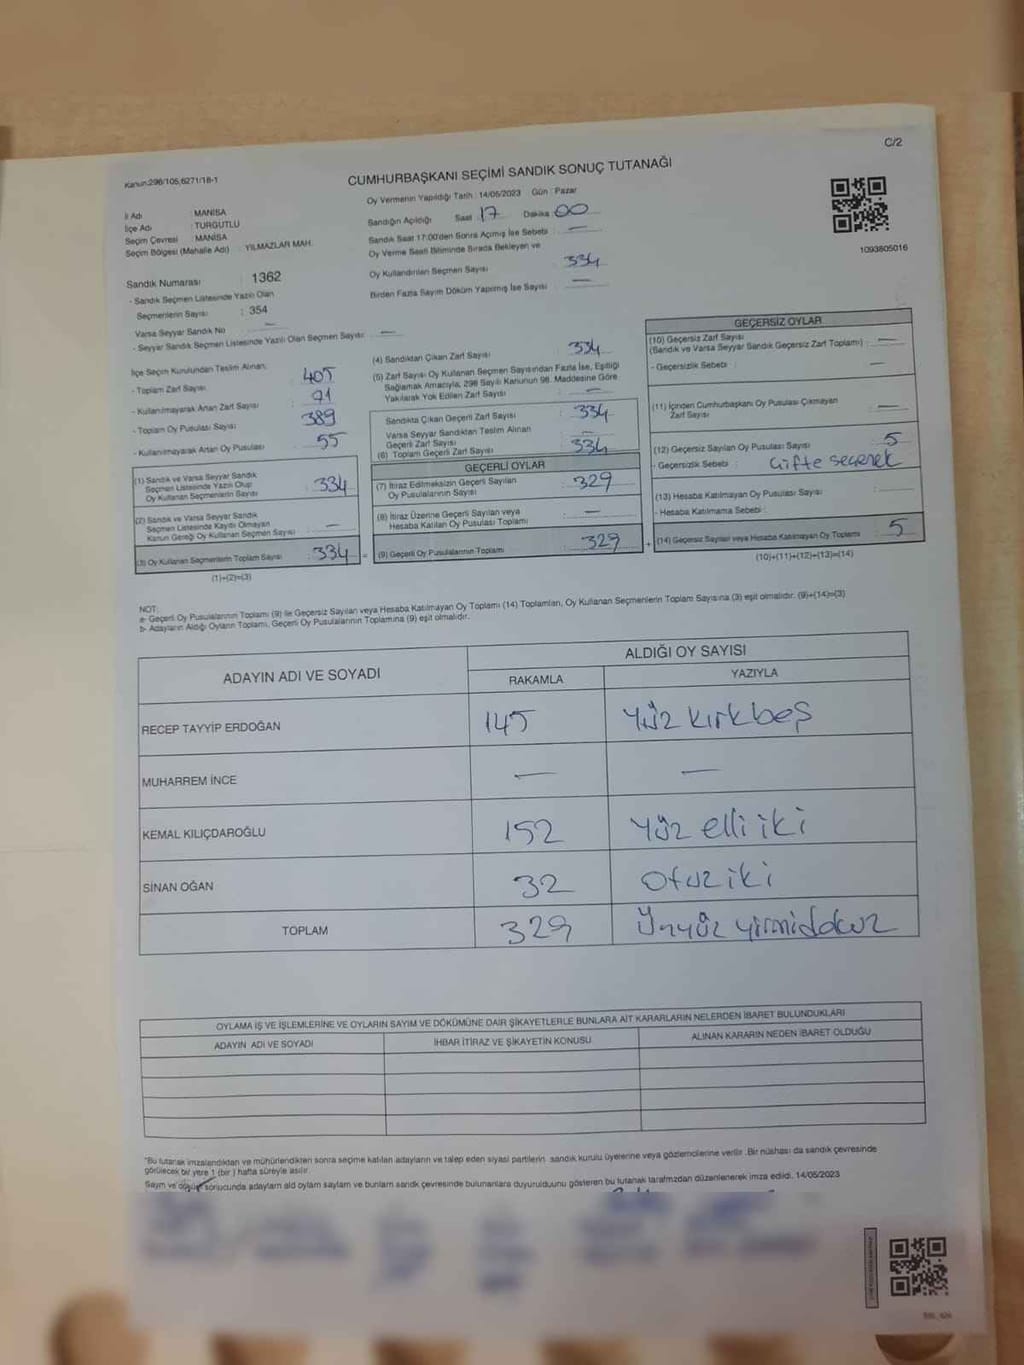 C/2
Kanun:298/105,6271/18-1
CUMHURBAŞKANI SEÇİMİ SANDIK SONUÇ TUTANAĞI
İl Adı : MANİSA
İlçe Adı : TURGUTLU
Seçim Çevresi : MANİSA
Seçim Bölgesi (Mahalle Adı) : YILMAZLAR MAH.
Sandık Numarası : 1362
- Sandık Seçmen Listesinde Yazılı Olan
Seçmenlerin Sayısı : 354
Varsa Seyyar Sandık No —
- Seyyar Sandık Seçmen Listesinde Yazılı Olan Seçmen Sayısı: —
Oy Vermenin Yapıldığı Tarih : 14/05/2023 Gün : Pazar
Sandığın Açıldığı Saat 17 Dakika 00
Sandık Saat 17:00'den Sonra Açılmış İse Sebebi : —
Oy Verme Saati Bitiminde Sırada Bekleyen ve
Oy Kullandırılan Seçmen Sayısı 334
Birden Fazla Sayım Döküm Yapılmış İse Sayısı —
1093805016
İlçe Seçim Kurulundan Teslim Alınan:
- Toplam Zarf Sayısı : 405
- Kullanılmayarak Artan Zarf Sayısı : 91
- Toplam Oy Pusulası Sayısı : 389
- Kullanılmayarak Artan Oy Pusulası : 55
(1) Sandık ve Varsa Seyyar Sandık
Seçmen Listesinde Yazılı Olup
Oy Kullanan Seçmenlerin Sayısı : 334
(2) Sandık ve Varsa Seyyar Sandık
Seçmen Listesinde Kaydı Olmayan
Kanun Gereği Oy Kullanan Seçmen Sayısı : —
(3) Oy Kullanan Seçmenlerin Toplam Sayısı : 334 =
(1)+(2)=(3)
(4) Sandıktan Çıkan Zarf Sayısı : 334
(5) Zarf Sayısı Oy Kullanan Seçmen Sayısından Fazla İse, Eşitliği
Sağlamak Amacıyla, 298 Sayılı Kanunun 98. Maddesine Göre
Yakılarak Yok Edilen Zarf Sayısı : —
Sandıkta Çıkan Geçerli Zarf Sayısı : 334
Varsa Seyyar Sandıktan Teslim Alınan
Geçerli Zarf Sayısı : —
(6) Toplam Geçerli Zarf Sayısı : 334
GEÇERLİ OYLAR
(7) İtiraz Edilmeksizin Geçerli Sayılan
Oy Pusulalarının Sayısı : 329
(8) İtiraz Üzerine Geçerli Sayılan veya
Hesaba Katılan Oy Pusulası Toplamı : —
(9) Geçerli Oy Pusulalarının Toplamı : 329 +
GEÇERSİZ OYLAR
(10) Geçersiz Zarf Sayısı
(Sandık ve Varsa Seyyar Sandık Geçersiz Zarf Toplamı) : —
- Geçersizlik Sebebi : —
(11) İçinden Cumhurbaşkanı Oy Pusulası Çıkmayan
Zarf Sayısı : —
(12) Geçersiz Sayılan Oy Pusulası Sayısı : 5
- Geçersizlik Sebebi : Çifte seçenek
(13) Hesaba Katılmayan Oy Pusulası Sayısı :
- Hesaba Katılmama Sebebi :
(14) Geçersiz Sayılan veya Hesaba Katılmayan Oy Toplamı : 5
(10)+(11)+(12)+(13)=(14)
NOT:
a- Geçerli Oy Pusulalarının Toplamı (9) ile Geçersiz Sayılan veya Hesaba Katılmayan Oy Toplamı (14) Toplamları, Oy Kullanan Seçmenlerin Toplam Sayısına (3) eşit olmalıdır. (9)+(14)=(3)
b- Adayların Aldığı Oyların Toplamı, Geçerli Oy Pusulalarının Toplamına (9) eşit olmalıdır.
ADAYIN ADI VE SOYADI
ALDIĞI OY SAYISI
RAKAMLA
YAZIYLA
RECEP TAYYİP ERDOĞAN 145 Yüz kırkbeş
MUHARREM İNCE — —
KEMAL KILIÇDAROĞLU 152 Yüz elli iki
SİNAN OĞAN 32 Otuz iki
TOPLAM 329 Üçyüz yirmidokuz
OYLAMA İŞ VE İŞLEMLERİNE VE OYLARIN SAYIM VE DÖKÜMÜNE DAİR ŞİKAYETLERLE BUNLARA AİT KARARLARIN NELERDEN İBARET BULUNDUKLARI
ADAYIN ADI VE SOYADI
İHBAR İTİRAZ VE ŞİKAYETİN KONUSU
ALINAN KARARIN NEDEN İBARET OLDUĞU
"Bu tutanak imzalandıktan ve mühürlendikten sonra seçime katılan adayların ve talep eden siyasi partilerin sandık kurulu üyelerine veya gözlemcilerine verilir .Bir nüshası da sandık çevresinde
görülecek bir yere 1 (bir ) hafta süreyle asılır.
Sayım ve döküm sonucunda adayların aldı oyların sayların ve bunların sandk çevresinde bulunanlara duyurulduunu gösteren bu tutanak tarafmzdan düzenlenerek imza edildi. 14/05/2023